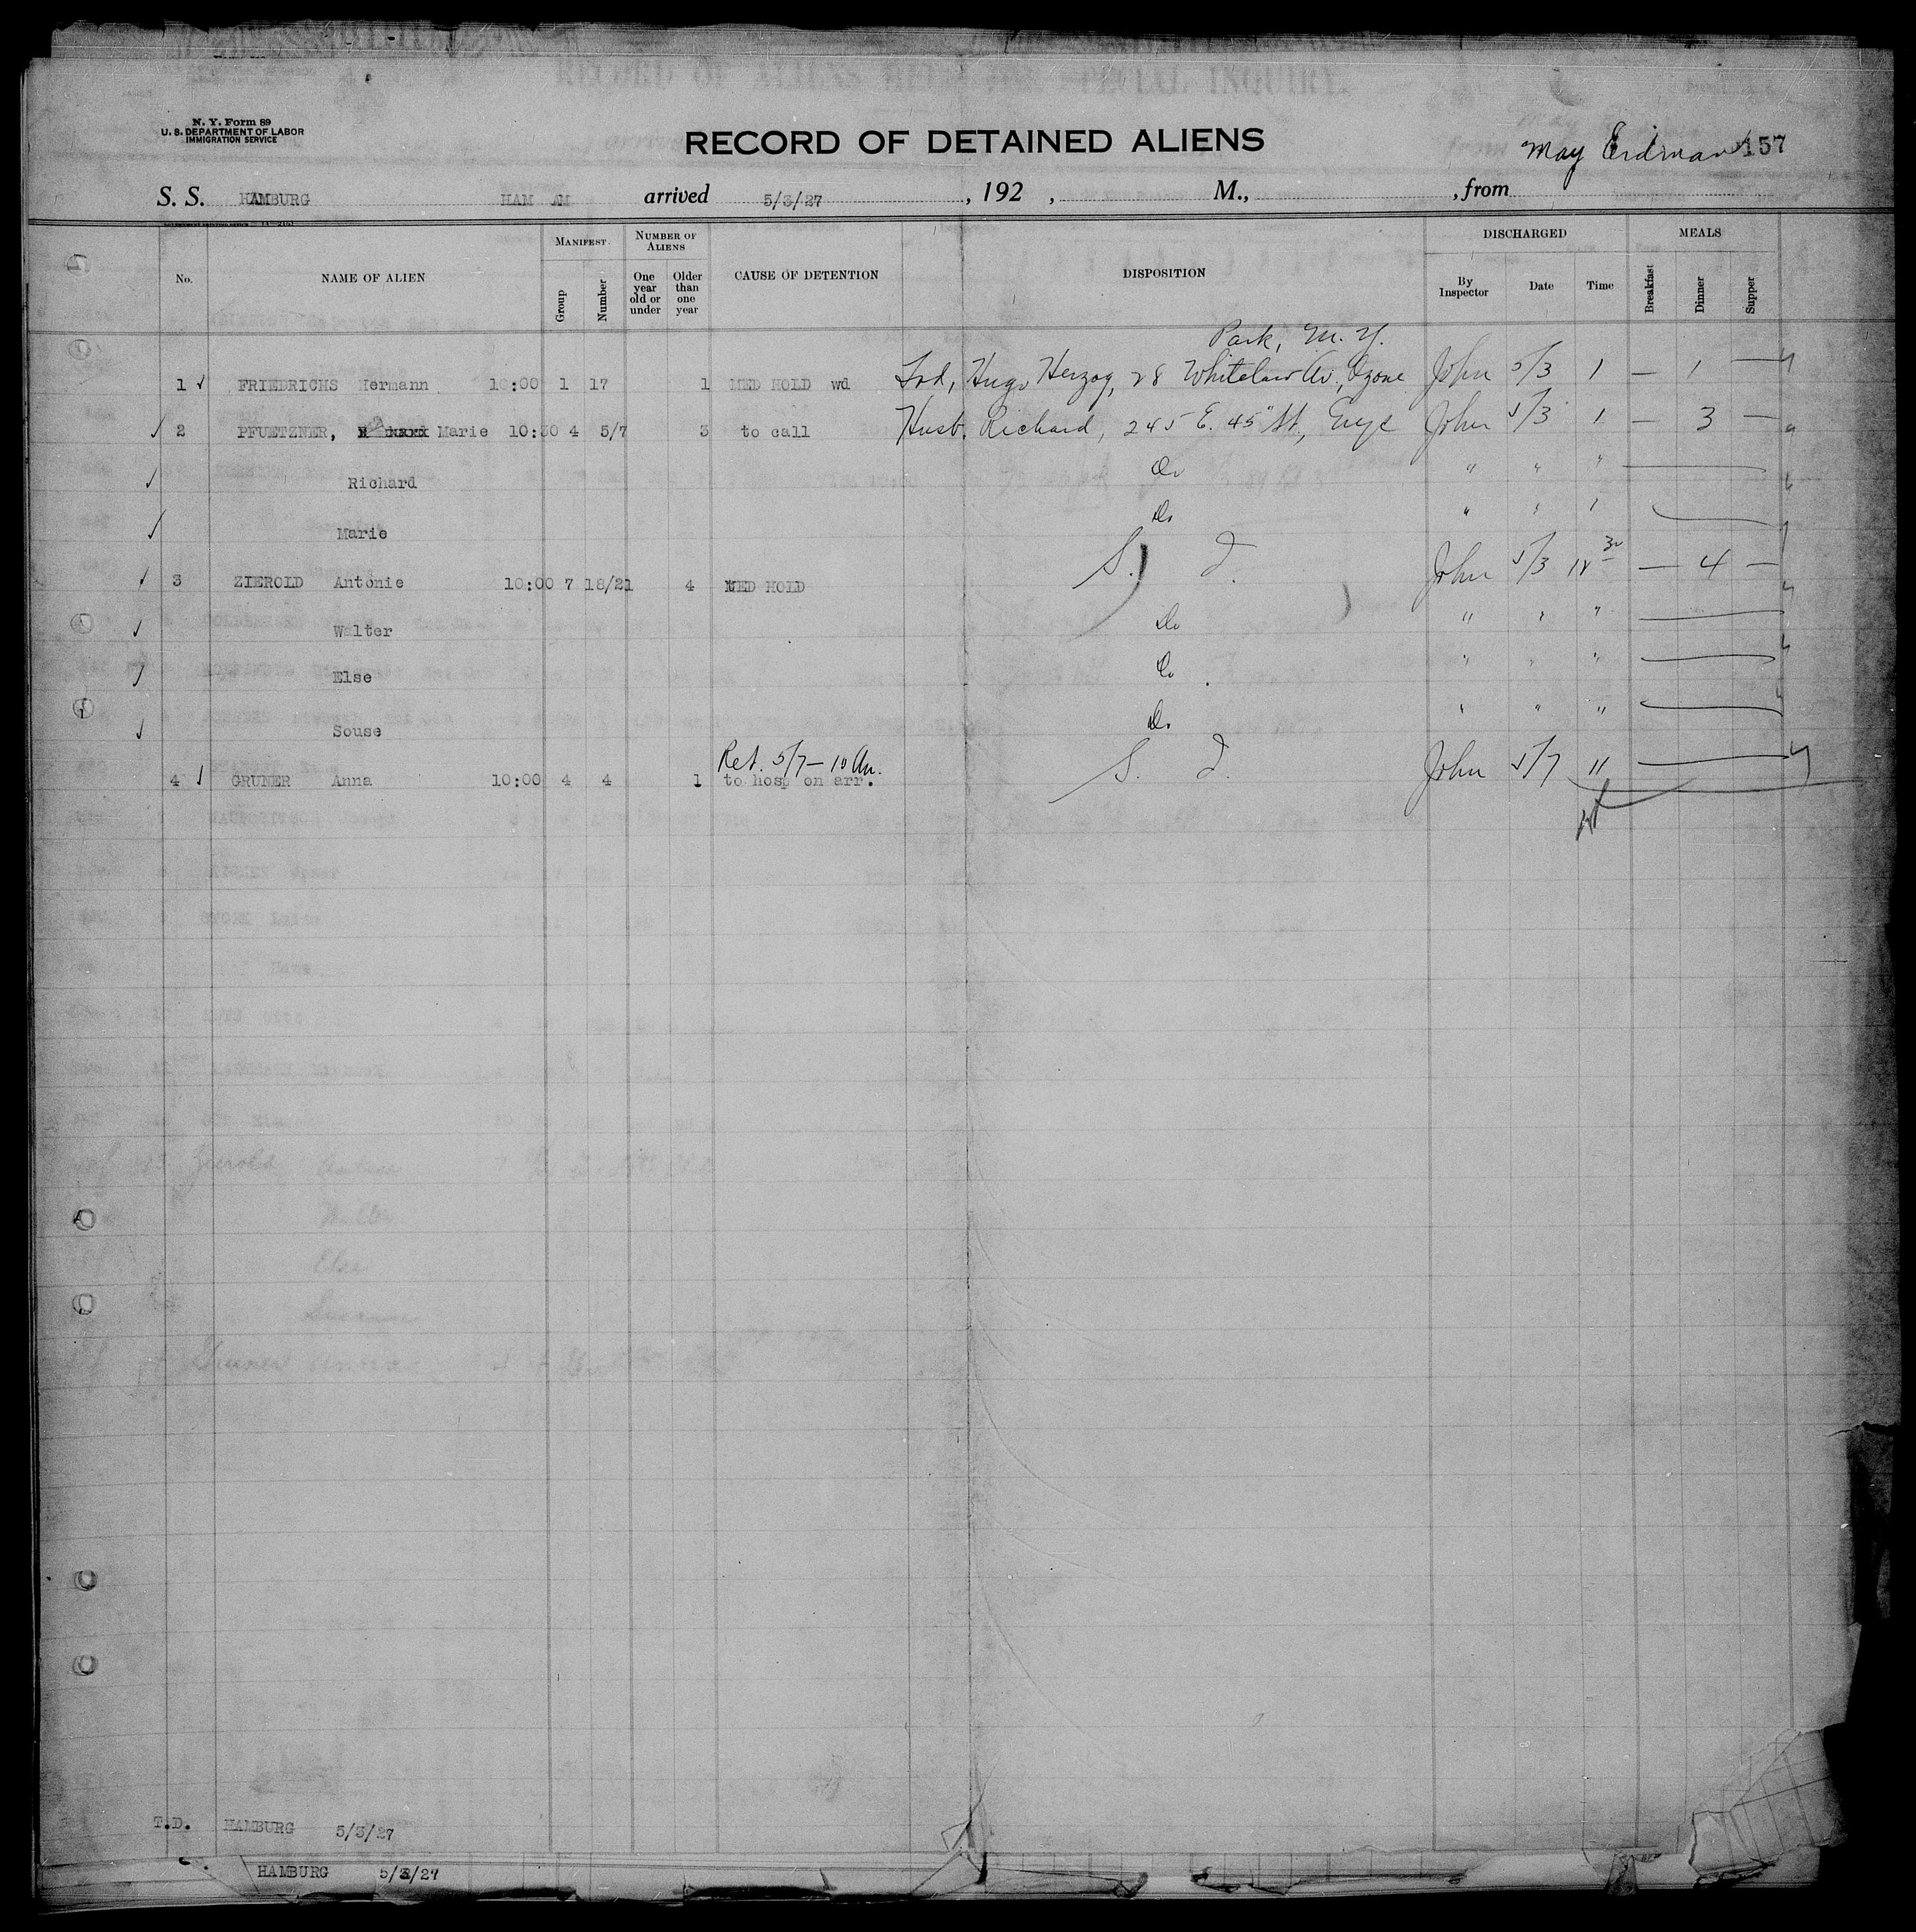 N. Y. Form 89
U. S. DEPARTMENT OF LABOR
IMMIGRATION SERVICE
RECORD OF DETAINED ALIENS
May Erdman 157
S. S. HAMBURG HAM AM arrived 5/3/27, 192 , M., , from
No. NAME OF ALIEN MANIFEST Group Number NUMBER OF ALIENS One year old or under Older than one year CAUSE OF DETENTION DISPOSITION DISCHARGED By Inspector Date Time MEALS Breakfast Dinner Supper
Park, N. Y.
1 ✓ FRIEDRICHS Hermann 10:00 1 17 1 MED HOLD wd Frd, Hugo Herzog, 28 Whitelaw Av., Ozone John 5/3 1 — 1 —
✓ 2 PFUETZNER, Marie 10:30 4 5/7 3 to call Husb. Richard, 245 E. 45" St., Nyc John 5/3 1 — 3 —
✓ Richard Do " " "
✓ Marie Do " "
✓ 3 ZIEROLD Antonie 10:00 7 18/21 4 MED HOLD S. I. John 5/3 12 30 — 4 —
✓ Walter Do " " "
✓ Else Do " " "
✓ Souse Do " " "
Ret. 5/7 — 10 Am.
4 ✓ GRUNER Anna 10:00 4 4 1 to hosp on arr. S. I. John 5/7 11
T.D. HAMBURG 5/3/27
HAMBURG 5/3/27